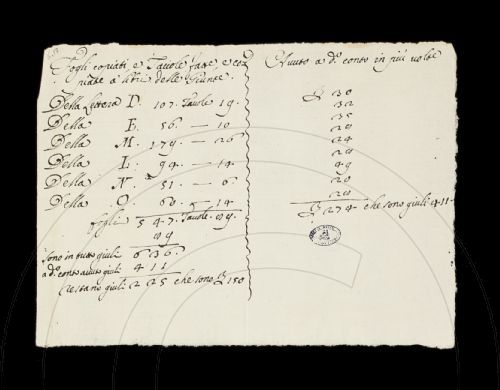 Fogli copiati e Tavole fatte e co=
piate a libri delle Giunte.
Della Lettera D. 107. Tavole 19.
Della E. 56. — 10
Della M. 179. — 26
Della L. 94. — 14
Della N. 51. — 6
Della O. 60. — 14
fogli 547. Tavole 89.
89
Sono in tutto giuli 636.
a d.º conto avuto giuli 411
Restano giuli 225 che sono £ 150
Avuto a d.º conto in più volte
£ 30
32
35
24
49
£ 274 che sono giuli 411.